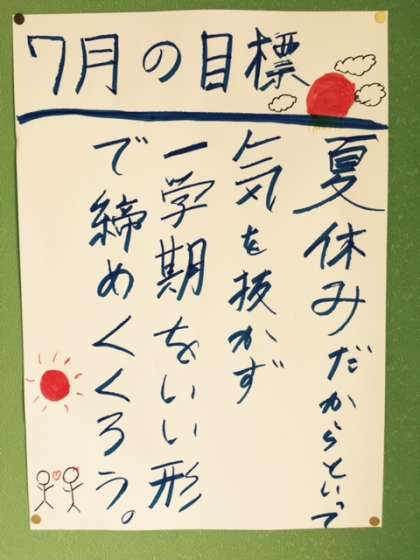 7月の目標
夏休みだからといって
気を抜かず
一学期をいい形
で締めくくろう。